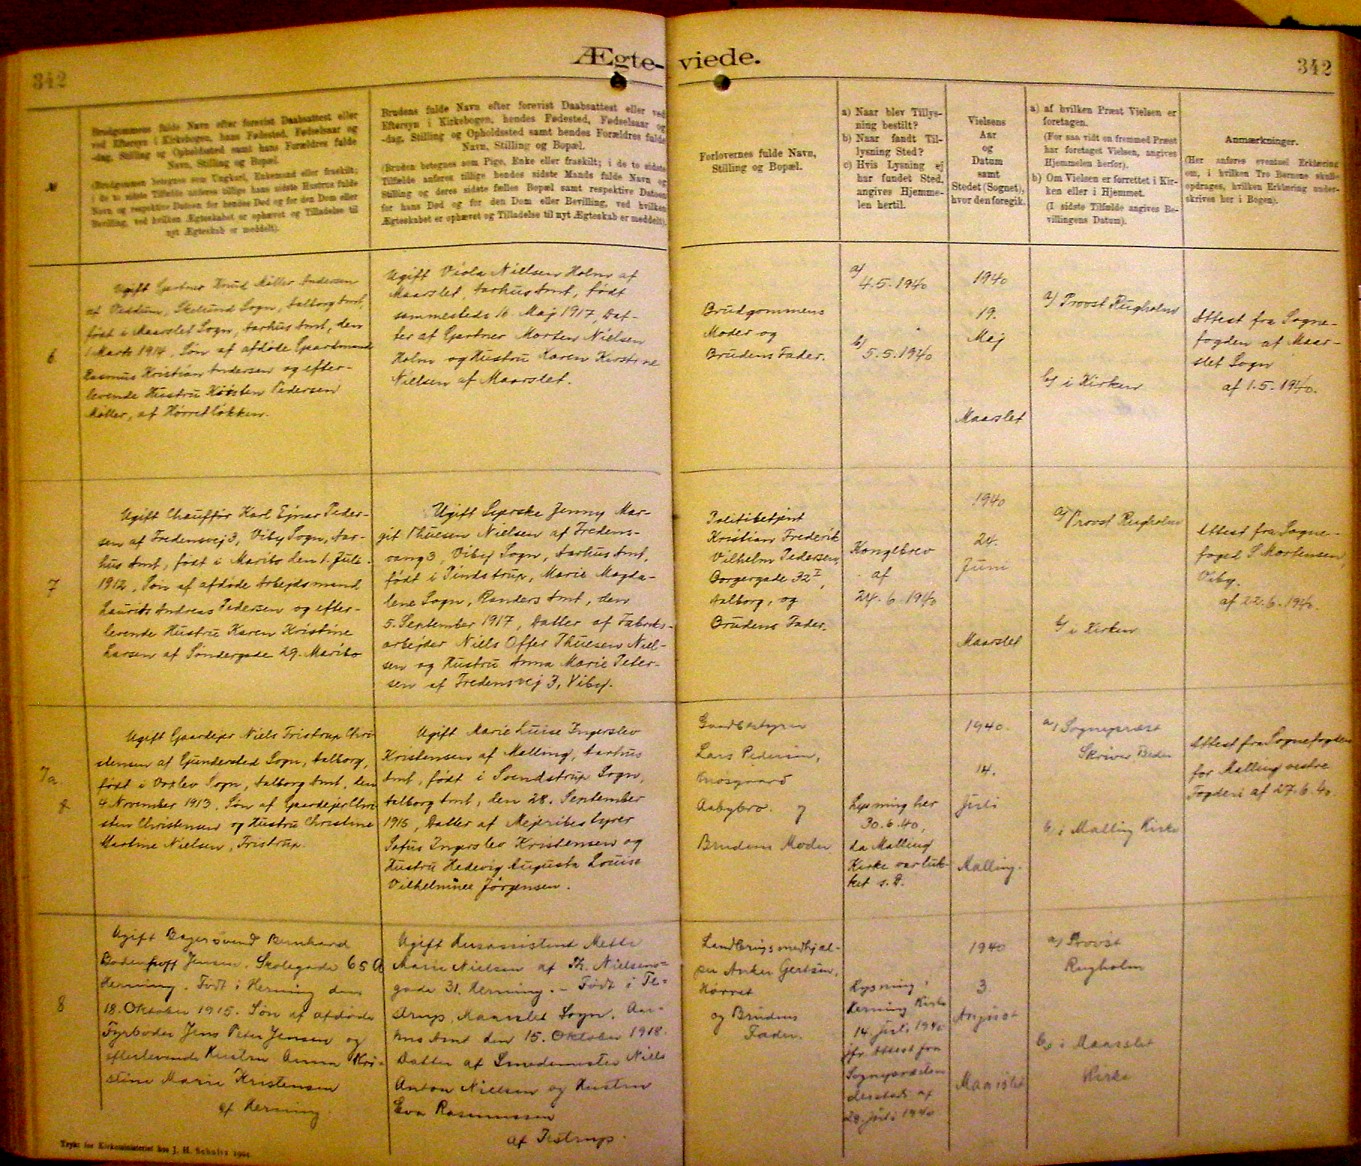 342
Ægte- viede.
342
№
Brudgommens fulde Navn efter forevist Daabsattest eller
ved Eftersyn i Kirkebogen, hans Fødested, Fødselsaar og
-dag, Stilling og Opholdssted samt hans Forældres fulde
Navn, Stilling og Bopæl.
(Brudgommen betegnes som Ungkarl, Enkemand eller fraskilt;
i de to sidste Tilfælde anføres tillige hans sidste Hustrus fulde
Navn og respektive Datoen for hendes Død og for den Dom eller
Bevilling, ved hvilken Ægteskabet er ophævet og Tilladelse til
nyt Ægteskab er meddelt).
Brudens fulde Navn efter forevist Daabsattest eller ved
Eftersyn i Kirkebogen, hendes Fødested, Fødselsaar og
-dag, Stilling og Opholdssted samt hendes Forældres fulde
Navn, Stilling og Bopæl.
(Bruden betegnes som Pige, Enke eller fraskilt; i de to sidste
Tilfælde anføres tillige hendes sidste Mands fulde Navn og
Stilling og deres sidste fælles Bopæl samt respektive Datoen
for hans Død og for den Dom eller Bevilling, ved hvilken
Ægteskabet er ophævet og Tilladelse til nyt Ægteskab er meddelt).
Forlovernes fulde Navn,
Stilling og Bopæl.
a) Naar blev Tillys-
ning bestilt?
b) Naar fandt Til-
lysning Sted?
c) Hvis Lysning ej
har fundet Sted,
angives Hjemme-
len hertil.
Vielsens
Aar
og
Datum
samt
Stedet (Sognet),
hvor den foregik.
a) af hvilken Præst Vielsen er
foretagen.
(For saa vidt en fremmed Præst
har foretaget Vielsen, angives
Hjemmelen herfor).
b) Om Vielsen er forrettet i Kir-
ken eller i Hjemmet.
(I sidste Tilfælde angives Be-
villingens Datum).
Anmærkninger.
(Her anføres eventuel Erklæring
om, i hvilken Tro Børnene skulle
opdrages, hvilken Erklæring under-
skrives her i Bogen).
6
Ugift Gartner Knud Møller Andersen
af Veddum, Skelund Sogn, Aalborg Amt,
født i Maarslet Sogn, Aarhus Amt, den
1 Marts 1914, Søn af afdøde Gaardmand
Rasmus Kristian Andersen og efter-
levende Hustru Kirsten Pedersen
Møller, af Hørretløkken.
Ugift Viola Nielsen Holm af
Maarslet, Aarhus Amt, født
sammesteds 16 Maj 1917, Dat-
ter af Gartner Morten Nielsen
Holm og Hustru Karen Kirstine
Nielsen af Maarslet.
Brudgommens
Moder og
Brudens Fader.
a)
4.5.1940
b)
5.5.1940
1940
19.
Maj
Maarslet
a) Provst Rugholm
b) i Kirken
Attest fra Sogne-
fogden af Maar-
slet Sogn
af 1.5.1940.
7
Ugift Chauffør Karl Ejner Peder-
sen af Fredensvej 3, Viby Sogn, Aar-
hus Amt, født i Maribo den 1. Juli
1912, Søn af afdøde Arbejdsmand
Laurits Andreas Pedersen og efter-
levende Hustru Karen Kristine
Larsen af Søndergade 29. Maribo
Ugift Syerske Jenny Mar-
git Thuesen Nielsen af Fredens-
vang 3, Viby Sogn, Aarhus Amt,
født i Pindstrup, Marie Magda-
lene Sogn, Randers Amt, den
5. September 1917, Datter af Fabriks-
arbejder Niels Offer Thuesen Niel-
sen og Hustru Anna Marie Peter-
sen af Fredensvej 3, Viby.
Politibetjent
Kristian Frederik
Vilhelm Pedersen,
Borgergade 32 I,
Aalborg, og
Brudens Fader.
Kongebrev
af
24.6.1940
1940
24.
Juni
Maarslet
a) Provst Rugholm
b) i Kirken
Attest fra Sogne-
foged P. Mortensen,
Viby.
af 22.6.1940.
7a
Ugift Gaardejer Niels Fristrup Chri-
stensen af Gundersted Sogn, Aalborg,
født i Voxlev Sogn, Aalborg Amt, den
4 November 1913, Søn af Gaardejer Chri-
sten Christensen og Hustru Christine
Martine Nielsen, Fristrup.
Ugift Marie Luise Ingerslev
Kristensen af Malling, Aarhus
Amt, født i Svendstrup Sogn,
Aalborg Amt, den 28. September
1915, Datter af Mejeribestyrer
Sofus Ingerslev Kristensen og
Hustru Hedevig Augusta Louise
Vilhelmine Jørgensen.
Gaardbestyrer
Lars Pedersen,
Knøsgaard
Aabybro og
Brudens Moder
Lysning her
30.6.40,
da Malling
Kirke var luk-
ket s.D.
1940.
14.
Juli
Malling.
a) Sognepræst
Skriver Beder
b) i Malling Kirke
Attest fra Sognefogden
for Malling vestre
Fogderi af 27.6.40.
8
Ugift Bager Svend Bernhard
Jensen. Skolegade 65 A
Herning. Født i Herning den
18. Oktober 1915. Søn af afdøde
Fyrbøder Jens Peter Jensen og
efterlevende Hustru Anna Kri-
stine Marie Kristensen
af Herning.
Ugift Husassistent Mette
Marie Nielsen af Th. Nielsens-
gade 31. Herning. – Født i Te-
strup, Maarslet Sogn. Aar-
hus Amt den 15. Oktober 1918.
Datter af Smedemester Niels
Anton Nielsen og Hustru
Eva Rasmussen
af Testrup.
Landbrugsmedhjæl-
per Anker Gertsen,
Hørret
og Brudens
Fader.
Lysning i
Herning Kirke
14. Juli 1940
jfr. Attest fra
Sognepræsten
dersteds af
29 Juli 1940
1940
3.
August
Maarslet
a) Provst
Rugholm
b) i Maarslet
Kirke
Trykt for Kirkeministeriet hos J. H. Schultz